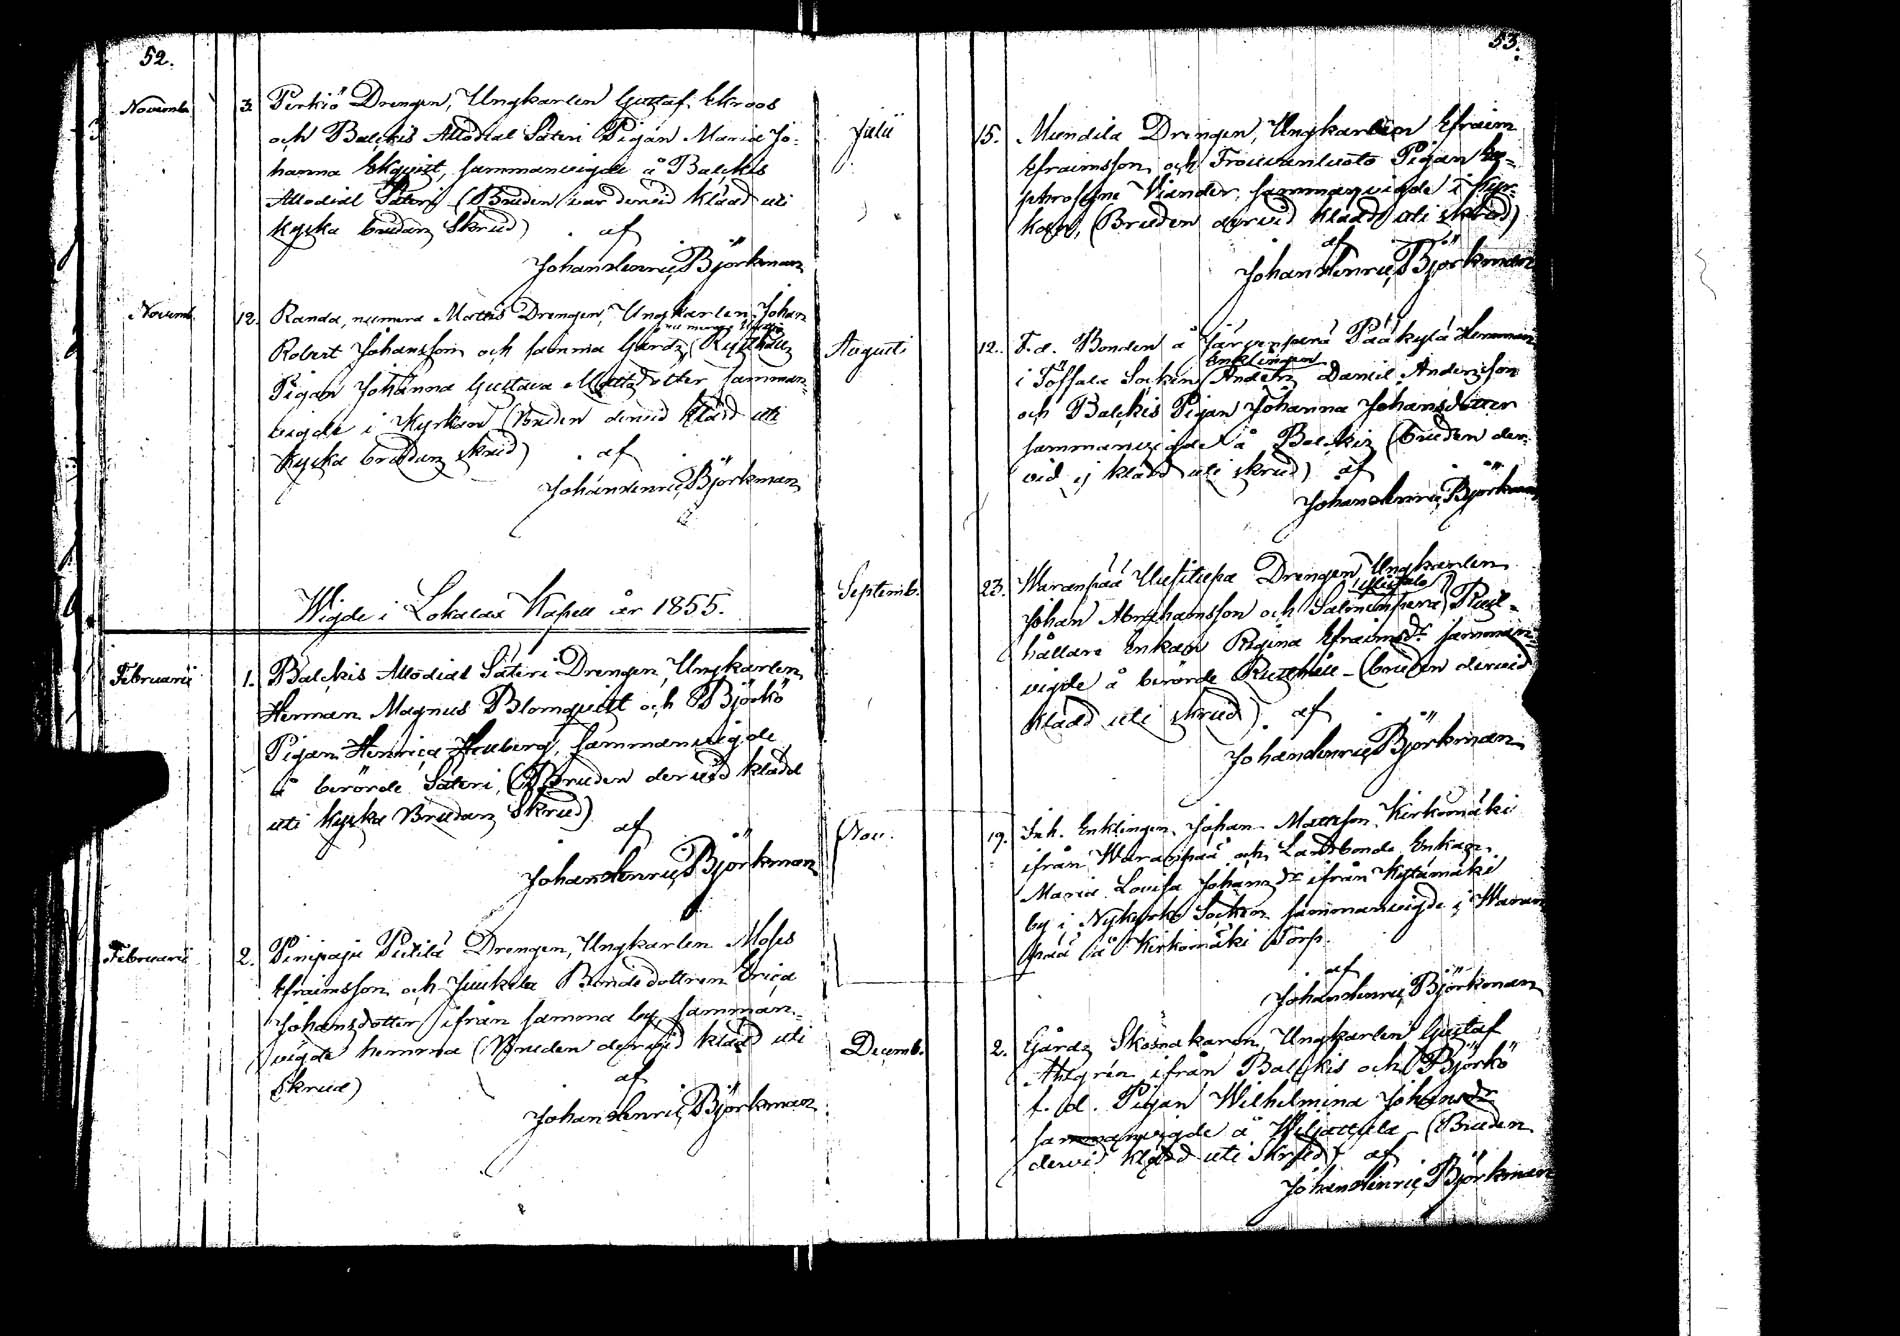 52.
Novemb. 3. Perkiö Drengen, Ungkarlen Gustaf Ekroos
och Balckis Allodial Säteri Pigan Maria Jo-
hanna Ekqvist, sammanvigde å Balckis
Allodial Säteri (Bruden var dervid klädd uti
kyska brudars Skrud) af
Johan Henric Björkman
Novemb. 12. Randa, numera Mattis Drengen, Ungkarlen Johan
Robert Johansson och samma Gårds Rusthålls
Pigan Johanna Gustava Mattsdotter samman-
vigde i Kyrkan (Bruden dervid klädd uti
Kyska brudars skrud) af
Johan Henric Björkman
Wigde i Lokalax Kapell år 1855.
Februarii 1. Balckis Allodial Säteri Drengen, Ungkarlen
Herman Magnus Blomqvist och Björkö
Pigan Henrica Heuberg, sammanvigde
å berörde Säteri, (Bruden dervid klädd
uti kyska Brudars Skrud)
af
Johan Henric Björkman
Februarii 2. Pinipaju Pietilä Drengen, Ungkarlen Moses
Efraimsson och Junkila Bondedottren Erica
Johansdotter ifrån samma by, samman-
vigde hemma (Bruden dervid klädd uti
Skrud) af
Johan Henric Björkman
53.
Julii 15. Mundila Drengen, Ungkarlen Efraim
Efraimsson och Trouvanluoto Pigan Eu-
phrosyne Viander, sammanvigde i Kyr-
kan, (Bruden dervid klädd uti skrud)
af
Johan Henric Björkman
Augusti 12. F.d. Bonden å Järvenperä Pääkylä Hemman
Enklingen
i Töffsala Socken Anders Daniel Andersson
och Balckis Pigan Johanna Johansdotter
sammanvigde å Balckis (bruden der-
vid ej klädd uti skrud) af
Johan Henric Björkman
Septemb. 23. Waranpää Uusitupa Drengen Ungkarlen
Johan Abrahamsson och Salmenperä Rust-
hållare Enkan Regina Efraimsdr samman-
vigde å berörde Rusthåll - (bruden dervid
klädd uti skrud) af
Johan Henric Björkman
Nov. 19. Inh. Enklingen Johan Mattsson Kirkomäki
ifrån Waranpää och Landbonde Enkan
Maria Lovisa Johansdr ifrån Kytämäki
by i Nykyrko Socken sammanvigde i Waran
pää å Kirkomäki Torp.
af
Johan Henric Björkman
Decemb. 2. Gårds Skomakaren, Ungkarlen Gustaf
Ahlgrén ifrån Balckis och Björkö
f. d. Pigan Wilhelmina Johansdr
sammanvigde å Wiljattula - (Bruden
dervid klädd uti Skrud) af
Johan Henric Björkman